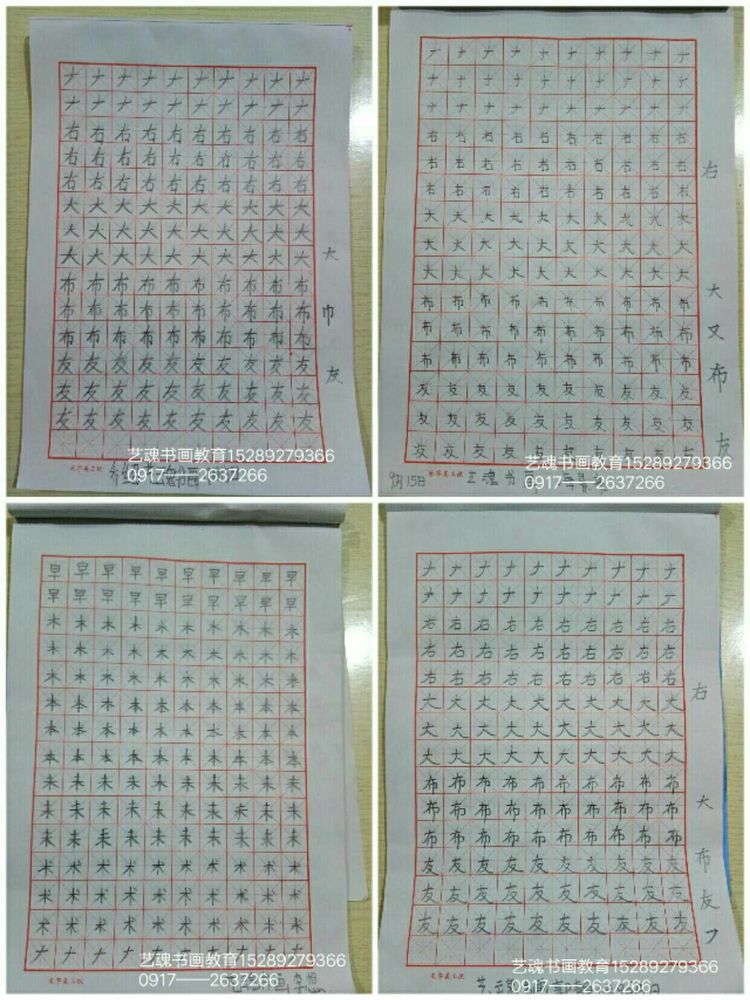 ナナナナナナナナナナ
ナナナナナナナナナナ
右右右右右右右右右右
右右右右右右右右右右
右右右右右右右右右右
大大大大大大大大大大
大大大大大大大大大大
大大大大大大大大大大
布布布布布布布布布布
布布布布布布布布布布
布布布布布布布布布布
友友友友友友友友友友
友友友友友友友友友友
友友友友友友友友友友
大
巾
友
艺魂书画教育15289279366
0917——2637266
ナナナナナナナナナナ
ナナナナナナナナナナ
ナナナナナナナナナナ
右右右右右右右右右右
右右右右右右右右右右
右右右右右右右右右右
大大大大大大大大大大
大大大大大大大大大大
大大大大大大大大大大
布布布布布布布布布布
布布布布布布布布布布
布布布布布布布布布布
友友友友友友友友友友
友友友友友友友友友友
友友友友友友友友友友
右
大
又
布
友
9月15日 艺魂书
艺魂书画教育15289279366
0917——2637266
早早早早早早早早早早
早早早早早早早早早早
木木木木木木木木木木
木木木木木木木木木木
木木木木木木木木木木
本本本本本本本本本本
本本本本本本本本本本
本本本本本本本本本本
未未未未未未未未未未
未未未未未未未未未未
未未未未未未未未未未
术术术术术术术术术术
术术术术术术术术术术
术术术术术术术术术术
ナナナナナナナナナナ
艺魂书画教育15289279366
0917——2637266
ナナナナナナナナナナ
ナナナナナナナナナナ
右右右右右右右右右右
右右右右右右右右右右
右右右右右右右右右右
大大大大大大大大大大
大大大大大大大大大大
大大大大大大大大大大
布布布布布布布布布布
布布布布布布布布布布
布布布布布布布布布布
友友友友友友友友友友
友友友友友友友友友友
友友友友友友友友友友
右
大
布
友
ナ
艺魂书画教育15289279366
0917——2637266